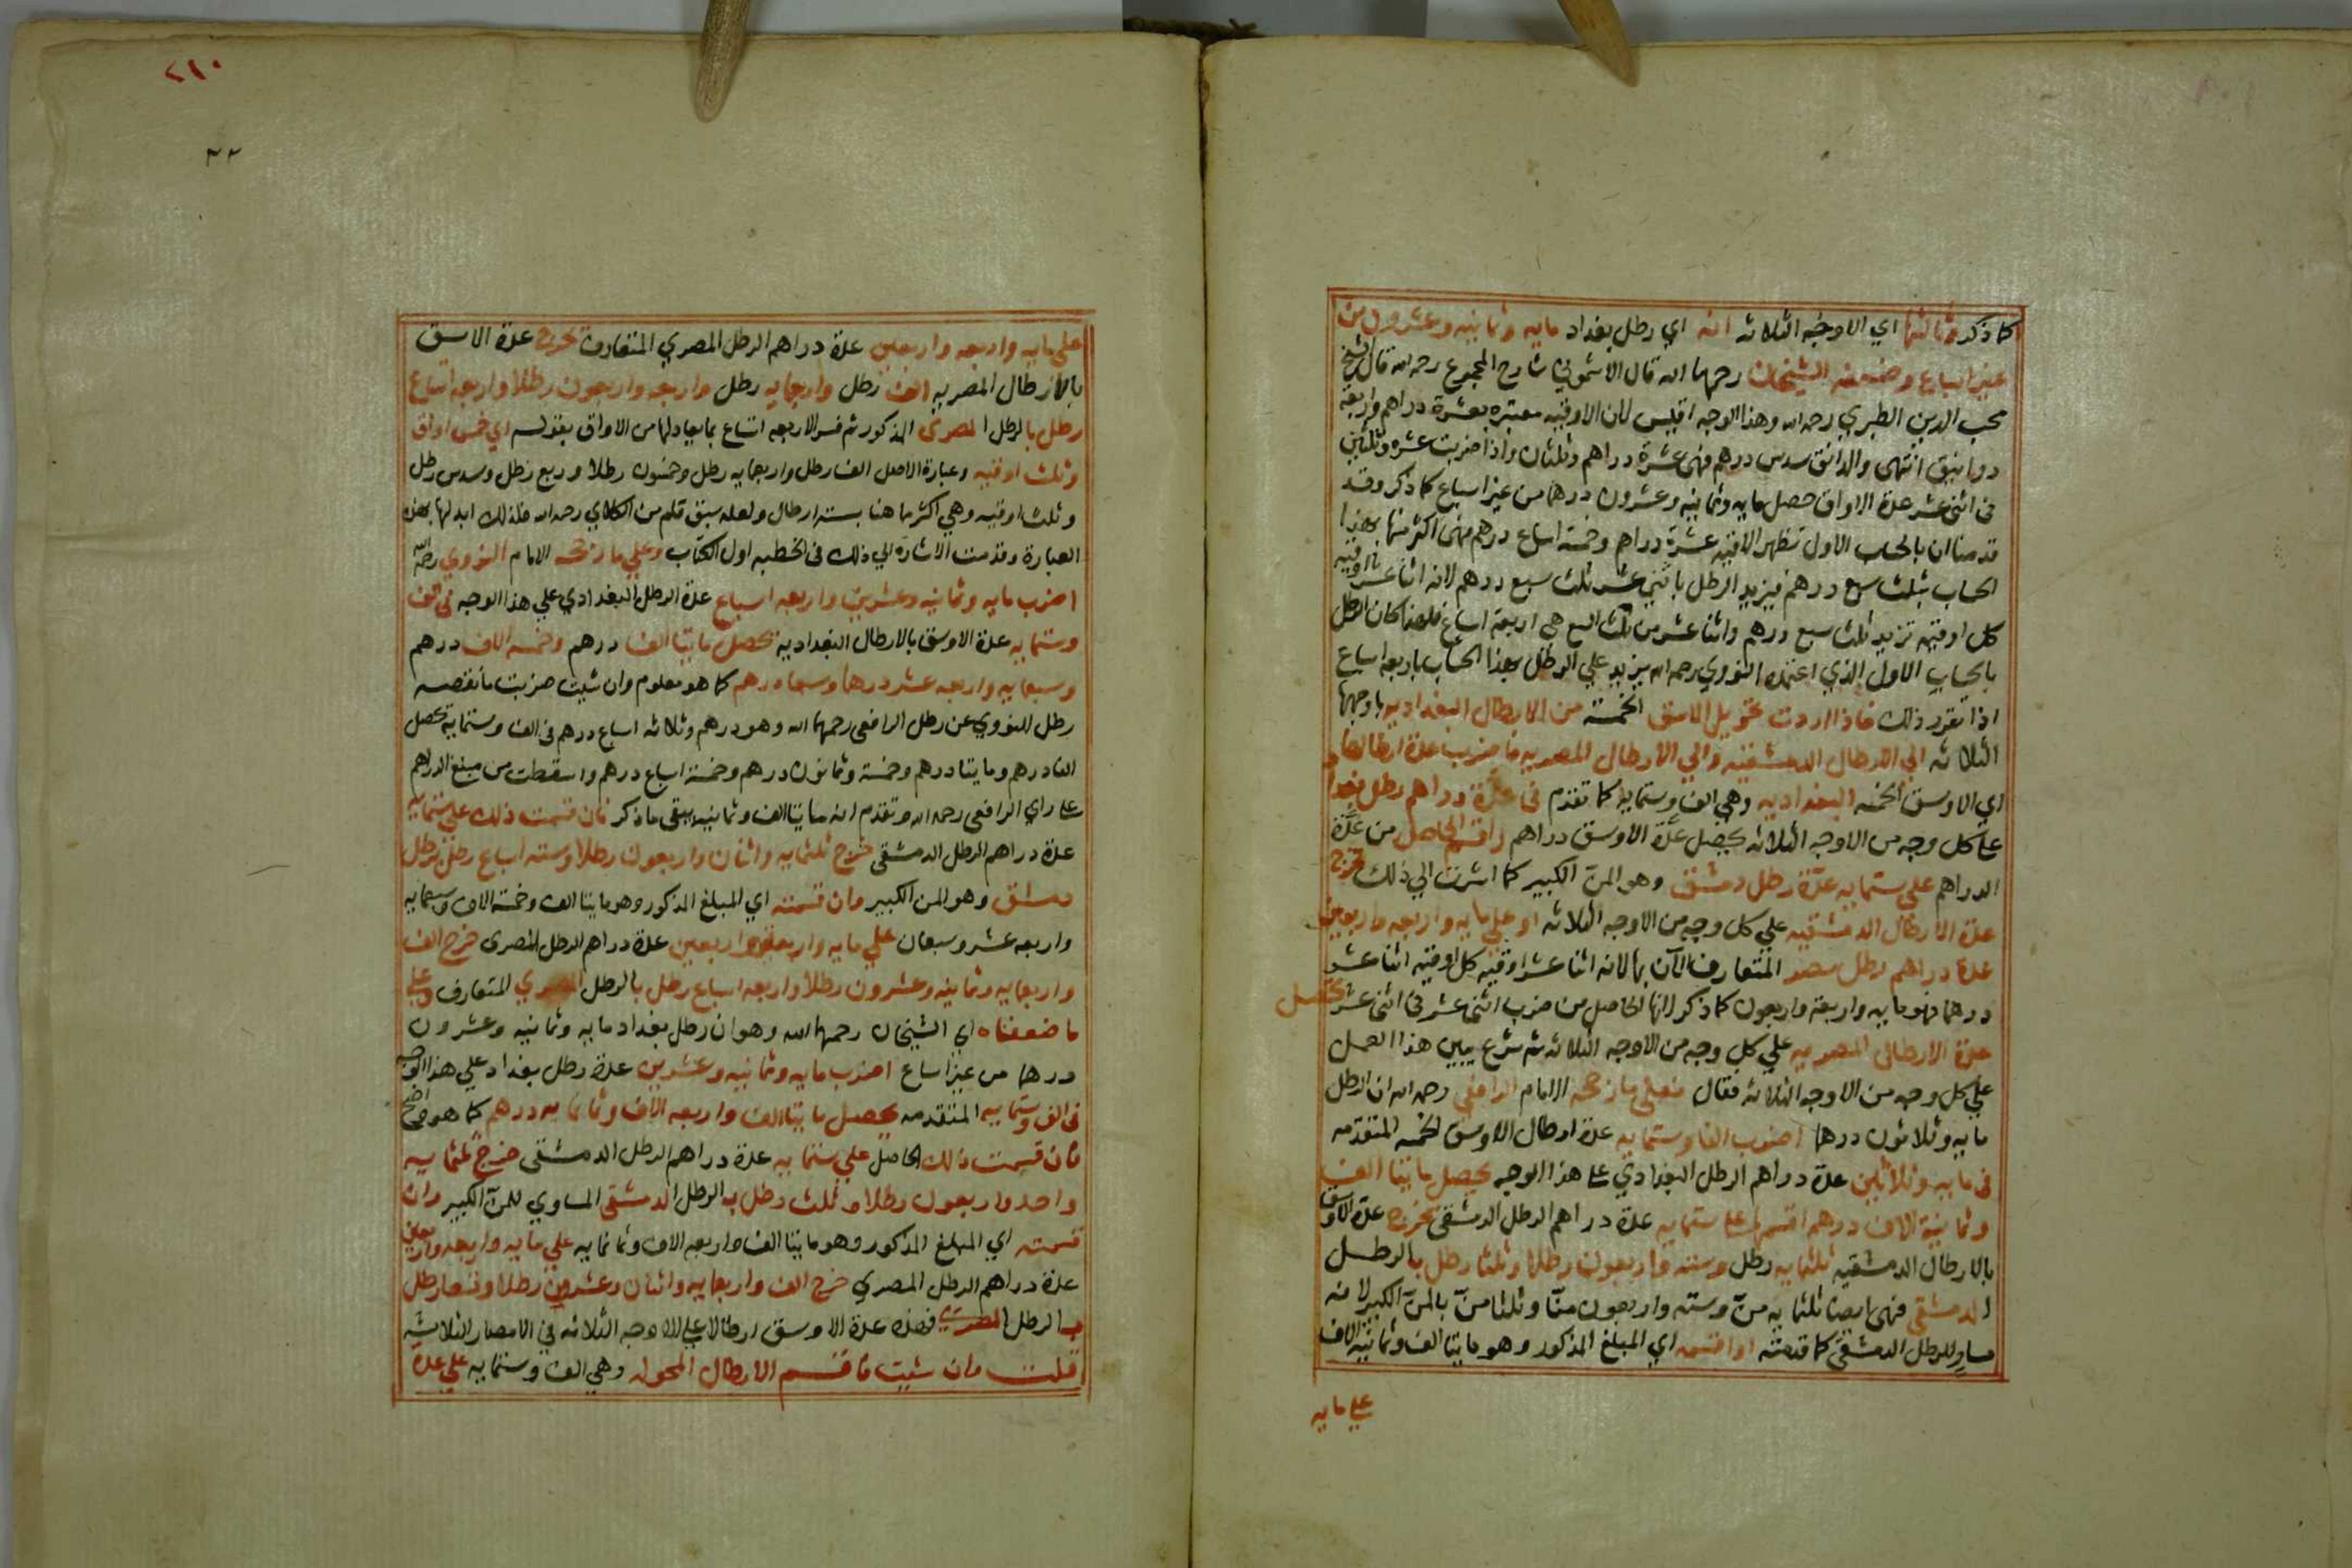 كما ذكر وثالثها اي الاوجه الثلاثه انه اي رطل بغداد مايه وثمانيه وعشرون من
غير اسباع وضعفه الشيخان رحمهما الله قال الاشموني شارح المجموع رحمه الله قال الشيخ
محب الدين الطبري رحمه الله وهذا الوجه اقيس لان الاوقيه معتبره بعشرة دراهم واربعة
دوانيق انتهى والدانق سدس درهم فهى عشرة دراهم وثلثان واذا ضربت عشره وثلثين
فى اثنى عشر عدة الاواق حصل مايه وثمانيه وعشرون درهما من غير اسباع كما ذكر وقد
قدمنا ان بالحساب الاول تظهر الاوقيه عشرة دراهم وخمسة اسباع درهم فهى اكثر منها بهذا
الحساب بثلث سبع درهم فيزيد الرطل باثنى عشر ثلث سبع درهم لانه اثنا عشر اوقيه
كل اوقيه تزيد ثلث سبع درهم واثنا عشر من ثلث السبع هي اربعة اسباع فلهذا كان الرطل
بالحساب الاول الذي اعتمده النووي رحمه الله يزيد علي الرطل بهذا الحساب باربعه اسباع
اذا تقرر ذلك فاذا اردت تحويل الاوسق الخمسة من الارطال البغداديه باوجهها
الثلاثه الي الارطال الدمشقيه والي الارطال المصريه فاضرب عدة ارطالها
اي الاوسق الخمسه البغداديه وهي الف وستمايه كما تقدم فى عدة دراهم رطل بغداد
علي كل وجه من الاوجه الثلاثه يحصل عدة الاوسق دراهم واقسم الحاصل من عدة
الدراهم علي ستمايه عدة رطل دمشق وهو المن الكبير كما اشرت الي ذلك تخرج
عدة الارطال الدمشقيه علي كل وجه من الاوجه الثلاثه او علي مايه واربعه واربعين
عدة دراهم رطل مصر المتعارف الآن بها لانه اثنا عشر اوقيه كل اوقيه اثنا عشر
درهما فهو مايه واربعة واربعون كما ذكر لانها الحاصل من ضرب اثنى عشر فى اثنى عشر تحصل
عدة الارطال المصريه علي كل وجه من الاوجه الثلاثه ثم شرع يبين هذا العمل
علي كل وجه من الاوجه الثلاثه فقال فعلي ما رجحه الامام الرافعي رحمه الله ان الرطل
مايه وثلاثون درهما اضرب الفا وستمايه عدة ارطال الاوسق الخمسه المتقدمه
فى مايه وثلاثين عدة دراهم الرطل البغدادي علي هذا الوجه يحصل مايتا الف
وثمانية الاف درهم اقسمها علي ستمايه عدة دراهم الرطل الدمشقى تخرج عدة الاوسق
بالارطال الدمشقيه ثلثمايه رطل وسته واربعون رطلا وثلثا رطل بالرطل
الدمشقى فهى ايضا ثلثمايه من وسته واربعون منا وثلثا من بالمن الكبير لانه
مساو للرطل الدمشقى كما قدمته او اقسم اي المبلغ المذكور وهو مايتا الف وثمانية الاف
علي مايه
٢١٠
علي مايه واربعه واربعين عدة دراهم الرطل المصري المتعارف تخرج عدة الاوسق
بالارطال المصريه الف رطل واربعمايه رطل واربعه واربعون رطلا واربعه اتساع
رطل بالرطل المصرى المذكور ثم فسر الاربعه اتساع بما يعادلها من الاواق بقوله اي خمس اواق
وثلث اوقيه وعبارة الاصل الف رطل واربعمايه رطل وخمسون رطلا وربع رطل وسدس رطل
وثلث اوقيه وهي اكثر ما هنا بسته ارطال ولعله سبق قلم من الكلائي رحمه الله فلذلك ابدلها بهذه
العبارة وقدمت الاشاره الي ذلك فى الخطبه اول الكتاب وعلي ما رجحه الامام النووي رحمه الله
اضرب مايه وثمانيه وعشرين واربعه اسباع عدة الرطل البغدادي علي هذا الوجه فى الف
وستمايه عدة الاوسق بالارطال البغداديه يحصل مايتا الف درهم وخمسه الاف درهم
وسبعمايه واربعه عشر درهما وسبعا درهم كما هو معلوم وان شيت ضربت ما نقصه
رطل النووي عن رطل الرافعى رحمهما الله وهو درهم وثلاثه اسباع درهم فى الف وستمايه يحصل
الفا درهم ومايتا درهم وخمسة وثمانون درهم وخمسة اسباع درهم واسقطت من مبلغ الدراهم
علي راي الرافعى رحمه الله وتقدم انه مايتا الف وثمانيه يبقى ما ذكر فان قسمت ذلك علي ستمايه
عدة دراهم الرطل الدمشقى خرج ثلثمايه واثنان واربعون رطلا وسته اسباع رطل برطل
دمشق وهو المن الكبير وان قسمته اي المبلغ المذكور وهو مايتا الف وخمسة الاف وسبعمايه
واربعه عشر وسبعان علي مايه واربعه واربعين عدة دراهم الرطل المصرى خرج الف
واربعمايه وثمانيه وعشرون رطلا واربعه اسباع رطل بالرطل المصري المتعارف وعلي
ما ضعفاه اي الشيخان رحمهما الله وهو ان رطل بغداد مايه وثمانيه وعشرون
درهما من غير اسباع اضرب مايه وثمانيه وعشرين عدة رطل بغداد علي هذا الوجه
فى الف وستمايه المتقدمه يحصل مايتا الف واربعه الاف وثمانمايه درهم كما هو واضح
فان قسمت ذلك الحاصل علي ستمايه عدة دراهم الرطل الدمشقى خرج ثلثمايه
واحد واربعون رطلا وثلث رطل بالرطل الدمشقى المساوي للمن الكبير وان
قسمته اي المبلغ المذكور وهو مايتا الف واربعه الاف وثمانمايه علي مايه واربعه واربعين
عدة دراهم الرطل المصري خرج الف واربعمايه واثنان وعشرون رطلا وتسعا رطل
بالرطل المصري فهذه عدة الاوسق ارطالا علي الاوجه الثلاثه في الامصار الثلاثة
قلت وان شيت فاقسم الارطال المحوله وهي الف وستمايه علي عدة